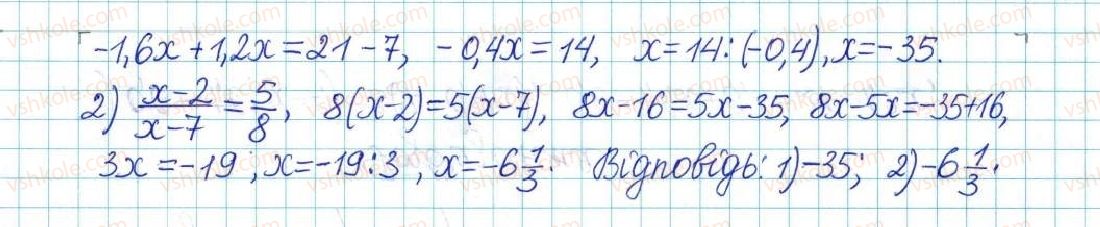 -1,6x + 1,2x = 21 - 7, -0,4x = 14, x = 14 : (-0,4), x = -35.
2) \frac{x-2}{x-7} = \frac{5}{8}, 8(x-2) = 5(x-7), 8x - 16 = 5x - 35, 8x - 5x = -35 + 16,
3x = -19; x = -19 : 3, x = -6\frac{1}{3}. Відповідь: 1) -35; 2) -6\frac{1}{3}.